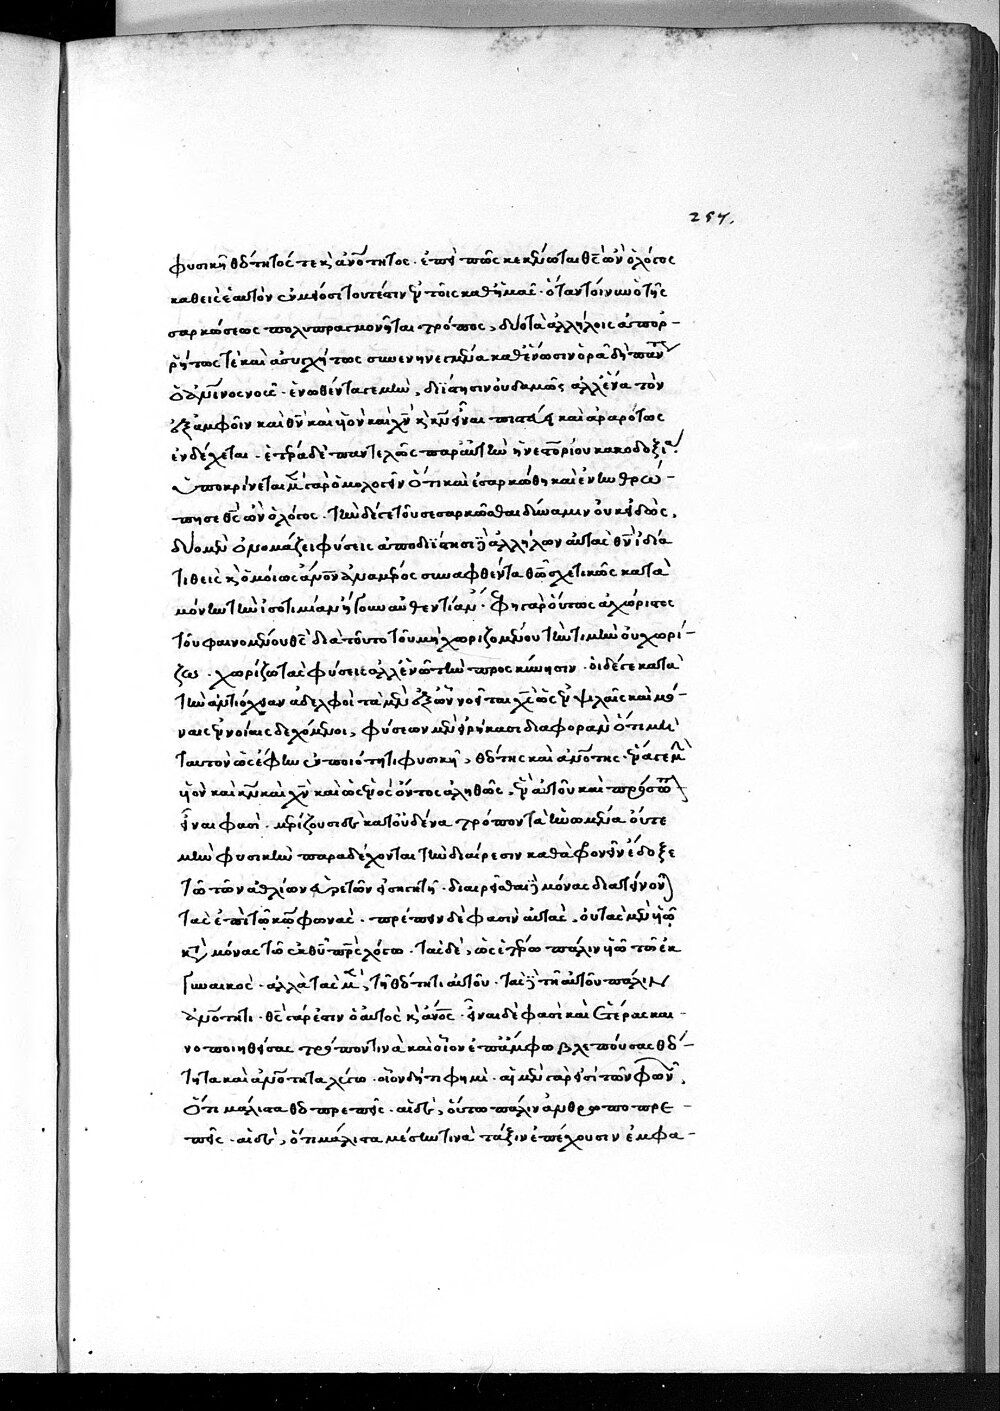 257.
φυσικῇ θεότητός τε καὶ ἀνότητος. ἐπεὶ πῶς κεκένωται θεὸς ὢν ὁ λόγος
καθεὶς ἑαυτὸν ἐν κενώσει τουτέστιν ἐν τοῖς καθ ἡμᾶς. ὅταν τοίνυν ὁ τῆς
σαρκώσεως πολυπραγμονῆται τρόπος, δύο τὰ ἀλλήλοις ἀπορ-
ρήτως τὲ καὶ ἀσυγχύτως συνενηνεγμένα καθ ἕνωσιν ὁρᾷ δὴ πάντως
ὁ ἀνος νοῦς. ἑνωθέντα γε μὴν, διΐστησιν οὐδαμῶς ἀλλ ἕνα τὸν
ἐξ ἀμφοῖν καὶ θν καὶ υἱὸν καὶ χν καὶ κν εἶναι πιστεύει καὶ ἀραρότως
ἐνδέχεται. ἑτέρα δὲ παντελῶς παρὰ ταύτην ἡ νεστορίου κακοδοξία.
ὑποκρίνεται μὲν γὰρ ὁμολογεῖν ὅτι καὶ ἐσαρκώθη καὶ ἐνηνθρώ-
πησε θς ὢν ὁ λόγος. τὴν δέ γε τοῦ σεσαρκῶσθαι δύναμιν οὐκ εἰδὼς,
δύο μὲν ὀνομάζει φύσεις ἀποδιΐστησι δὲ ἀλλήλων αὐτὰς θν ἰδίᾳ
τιθεὶς καὶ ὁμοίως ἄνον ἀναμέρος συναφθέντα θῶ σχετικῶς κατὰ
μόνην τὴν ἰσοτιμίαν ἤγουν αὐθεντίαν. φησὶ γὰρ οὕτως ἀχώριστος
τοῦ φαινομένου θς διὰ τοῦτο τοῦ μὴ χωριζομένου τὴν τιμὴν οὐ χωρί-
ζω. χωρίζω τὰς φύσεις ἀλλ ἑνῶ τὴν προσκύνησιν. οἱ δέ γε κατὰ
τὴν ἀντιόχειαν ἀδελφοὶ τὰ μὲν ἐξ ὧν νοεῖται χς ὡς ἐν ψιλαῖς καὶ μό-
ναις ἐννοίαις δεχόμενοι, φύσεων μὲν εἰρήκασι διαφορὰν ὅτι μὴ
ταυτὸν ὡς ἔφην ἐν ποιότητι φυσικῇ, θεότης καὶ ἀνότης. ἕνα γε μὴν
υἱὸν καὶ κν καὶ χν καὶ ὡς ἑνὸς ὄντος ἀληθῶς, ἓν αὐτοῦ καὶ πρόσωπον
εἶναι φασὶ. μερίζουσι δὲ κατ οὐδένα τρόπον τὰ ἡνωμένα οὔτε
μὴν φυσικὴν παραδέχονται τὴν διαίρεσιν καθὰ φρονεῖν ἔδοξε
τῷ τῶν ἀθλίων εὑρετῶν εἰσηγητῇ. διαιρεῖσθαι δὲ μόνας διατείνονται
τὰς ἐπὶ τῷ κω φωνὰς. πρέπειν δὲ φασὶν αὐτὰς, οὐ τὰς μὲν υἱῷ
κατὰ μόνας τῷ ἐκ θυ πρς λόγω. τὰς δὲ, ὡς ἑτέρω πάλιν υἱῷ τῷ ἐκ
γυναικὸς. ἀλλὰ τὰς μὲν, τῇ θεότητι αὐτοῦ. τὰς δὲ τῇ αὐτοῦ πάλιν
ἀνότητι. θς γάρ ἐστιν ὁ αὐτὸς καὶ ἄνος. εἶναι δὲ φασὶ καὶ ἑτέρας και-
νοποιηθείσας τρόπον τινὰ καὶ οἷον ἐπ ἄμφω βλεπούσας θεό-
τητα καὶ ἀνότητα λέγω. οἷον δή τι φημὶ. αἱ μὲν γάρ εἰσι τῶν φωνῶν,
ὅτι μάλιστα θεοπρεπεῖς. αἱ δὲ, οὕτω πάλιν ἀνθρωποπρε-
πεῖς. αἱ δὲ, ὅτι μάλιστα μέσην τινὰ τάξιν ἐπέχουσιν ἐμφα-